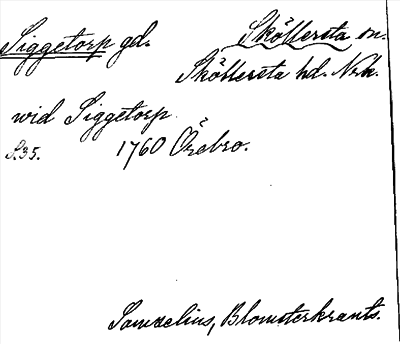 Siggetorp gd. Sköllersta sn.
Sköllersta hd. Nrk.
wid Siggetorp
S.35. 1760 Örebro.
Samzelius, Blomsterkrants.